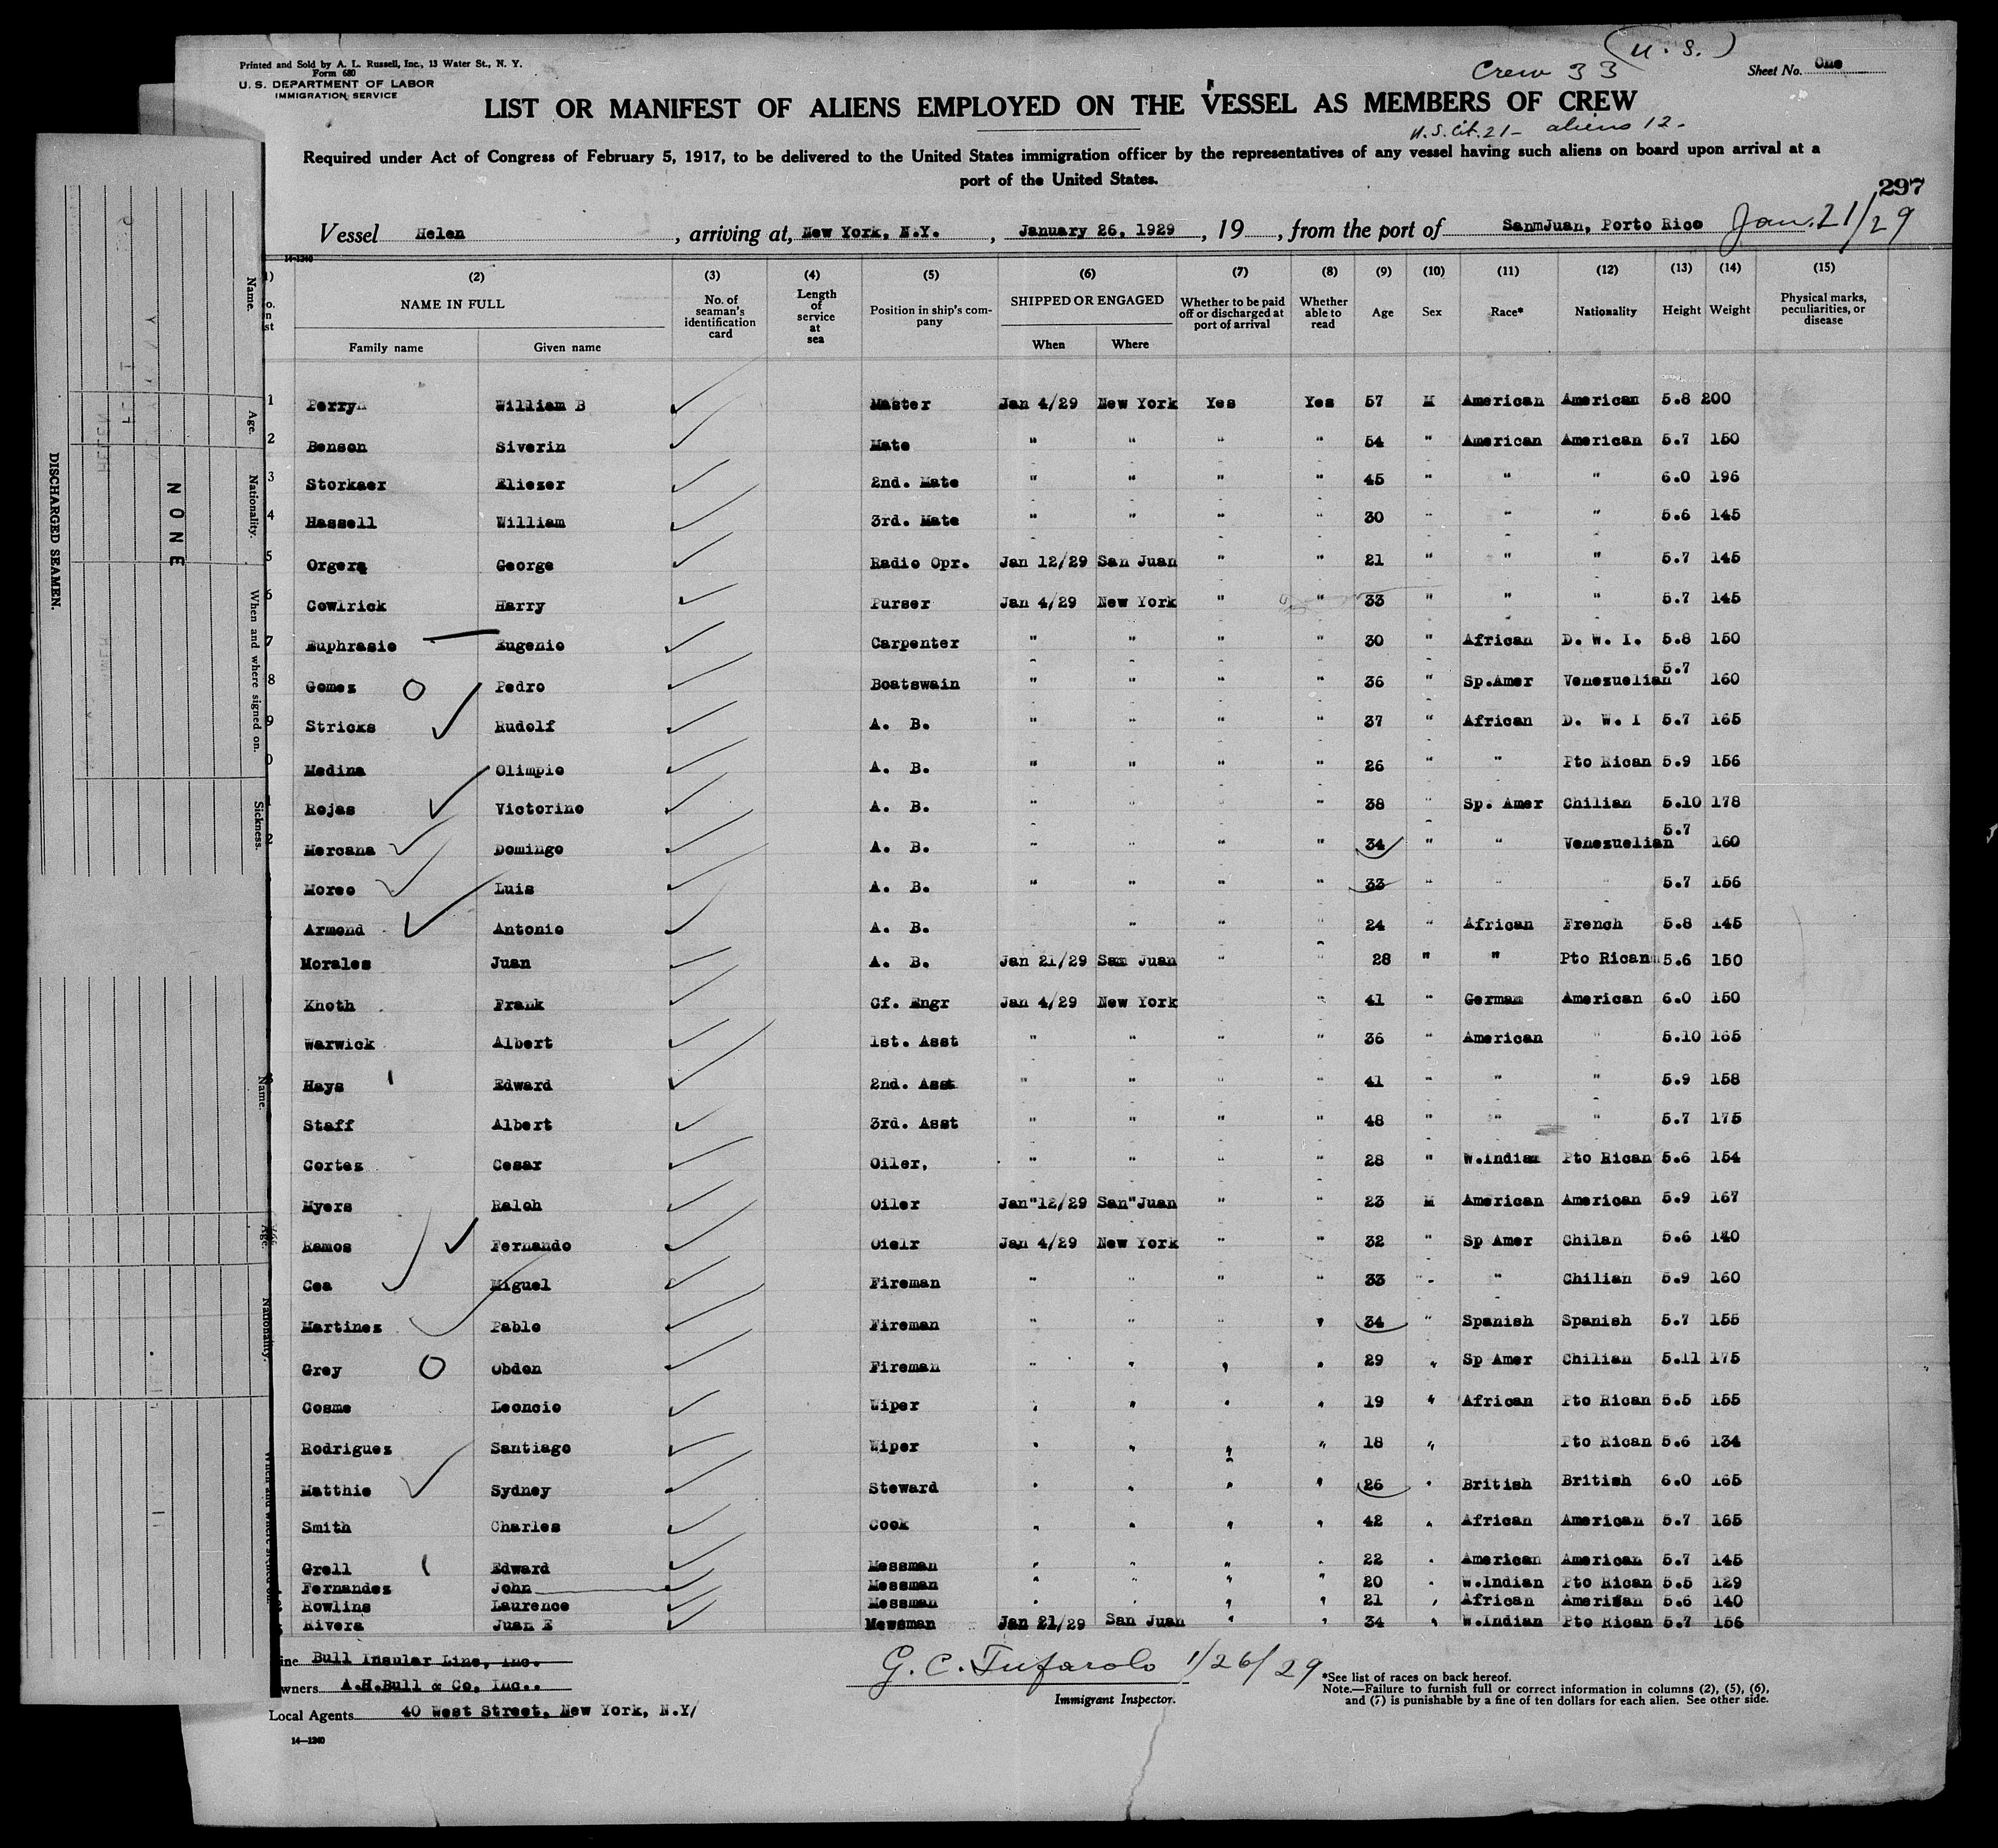 Printed and Sold by A. L. Russell, Inc., 13 Water St., N. Y.
Form 680
U. S. DEPARTMENT OF LABOR
IMMIGRATION SERVICE
(U. S.)
Crew 33
Sheet No. One
LIST OR MANIFEST OF ALIENS EMPLOYED ON THE VESSEL AS MEMBERS OF CREW
U.S. Cit. 21 - aliens 12 -
Required under Act of Congress of February 5, 1917, to be delivered to the United States immigration officer by the representatives of any vessel having such aliens on board upon arrival at a
port of the United States.
297
Vessel Helen, arriving at, New York, N.Y., January 26, 1929, 19, from the port of SanmJuan, Porto Rico Jan. 21/29
14-1240
(2) (3) (4) (5) (6) (7) (8) (9) (10) (11) (12) (13) (14) (15)
NAME IN FULL
Family name Given name
No. of seaman's identification card
Length of service at sea
Position in ship's company
SHIPPED OR ENGAGED
When Where
Whether to be paid off or discharged at port of arrival
Whether able to read
Age
Sex
Race*
Nationality
Height
Weight
Physical marks, peculiarities, or disease
1 Perry William B Master Jan 4/29 New York Yes Yes 57 M American American 5.8 200
2 Benson Siverin Mate " " " " 54 " American American 5.7 150
3 Storkaer Eliezer 2nd. Mate " " " " 45 " " " 6.0 196
4 Hassell William 3rd. Mate " " " " 30 " " " 5.6 145
5 Orgera George Radio Opr. Jan 12/29 San Juan " " 21 " " " 5.7 145
6 Cowlrick Harry Purser Jan 4/29 New York " " 33 " " " 5.7 145
7 Euphrasie Eugenio Carpenter " " " " 30 " African D. W. I. 5.8 150
8 Gomez Pedro Boatswain " " " " 36 " Sp.Amer Venezuelian 5.7 160
9 Stricks Rudolf A. B. " " " " 37 " African D. W. I 5.7 165
0 Medina Olimpio A. B. " " " " 26 " " Pto Rican 5.9 156
1 Rojas Victorino A. B. " " " " 38 " Sp. Amer Chilian 5.10 178
2 Mercana Domingo A. B. " " " " 34 " " Venezuelian 5.7 160
Moreo Luis A. B. " " " " 33 " " " 5.7 156
Armond Antonio A. B. " " " 24 " African French 5.8 145
Morales Juan A. B. Jan 21/29 San Juan " " 28 " " Pto Rican 5.6 150
Khoth Frank Cf. Engr Jan 4/29 New York " 41 " German American 6.0 150
Warwick Albert 1st. Asst " " " " 36 " American " 5.10 165
Hays Edward 2nd. Asst " " " " 41 " " " 5.9 158
Staff Albert 3rd. Asst " " " " 48 " " " 5.7 175
Cortez Cesar Oiler, " " " " 28 " W.Indian Pto Rican 5.6 154
Myers Ralph Oiler Jan"12/29 San"Juan " " 23 M American American 5.9 167
Ramos Fernando Oielr Jan 4/29 New York " " 32 " Sp Amer Chilan 5.6 140
Cea Miguel Fireman " " " " 33 " " Chilian 5.9 160
Martinez Pablo Fireman " " " " 34 " Spanish Spanish 5.7 155
Grey Obdon Fireman " " " " 29 " Sp Amer Chilian 5.11 175
Cosme Leoncio Wiper " " " " 19 " African Pto Rican 5.5 155
Rodriguez Santiago Wiper " " " " 18 " Pto Rican 5.6 134
Matthie Sydney Steward " " " " 26 " British British 6.0 165
Smith Charles Cook " " " " 42 " African American 5.7 165
Grell Edward Messman " " " " 22 " American American 5.7 145
Fernandez John Messman " " " " 20 " W.Indian Pto Rican 5.5 129
Rowlins Laurence Messman " " " " 21 " African American 5.6 140
Rivera Juan E Mewsman Jan 21/29 San Juan " " 34 " W.Indian Pto Rican 5.7 156
ine Bull Insular Line, Inc.
wners A.H.Bull & Co, Inc..
Local Agents 40 West Street, New York, N.Y/
14—1240
G. C. Tufarolo 1/26/29
Immigrant Inspector.
*See list of races on back hereof.
Note.—Failure to furnish full or correct information in columns (2), (5), (6),
and (7) is punishable by a fine of ten dollars for each alien. See other side.
DISCHARGED SEAMEN.
NONE
Name.
Age.
Nationality.
When and where signed on.
Sickness.
Name.
Age.
Nationality.